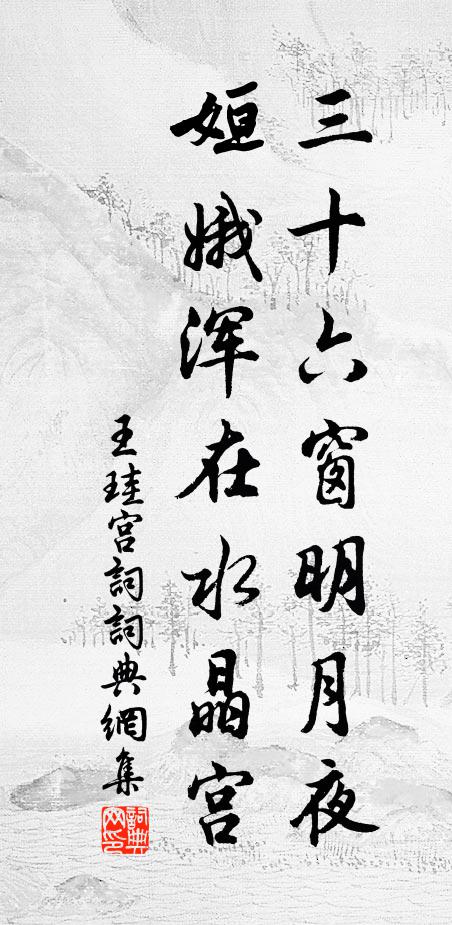 三十六窗明月夜
姮娥浑在水晶宫
王珪宫詞詞典網集
詞典網印